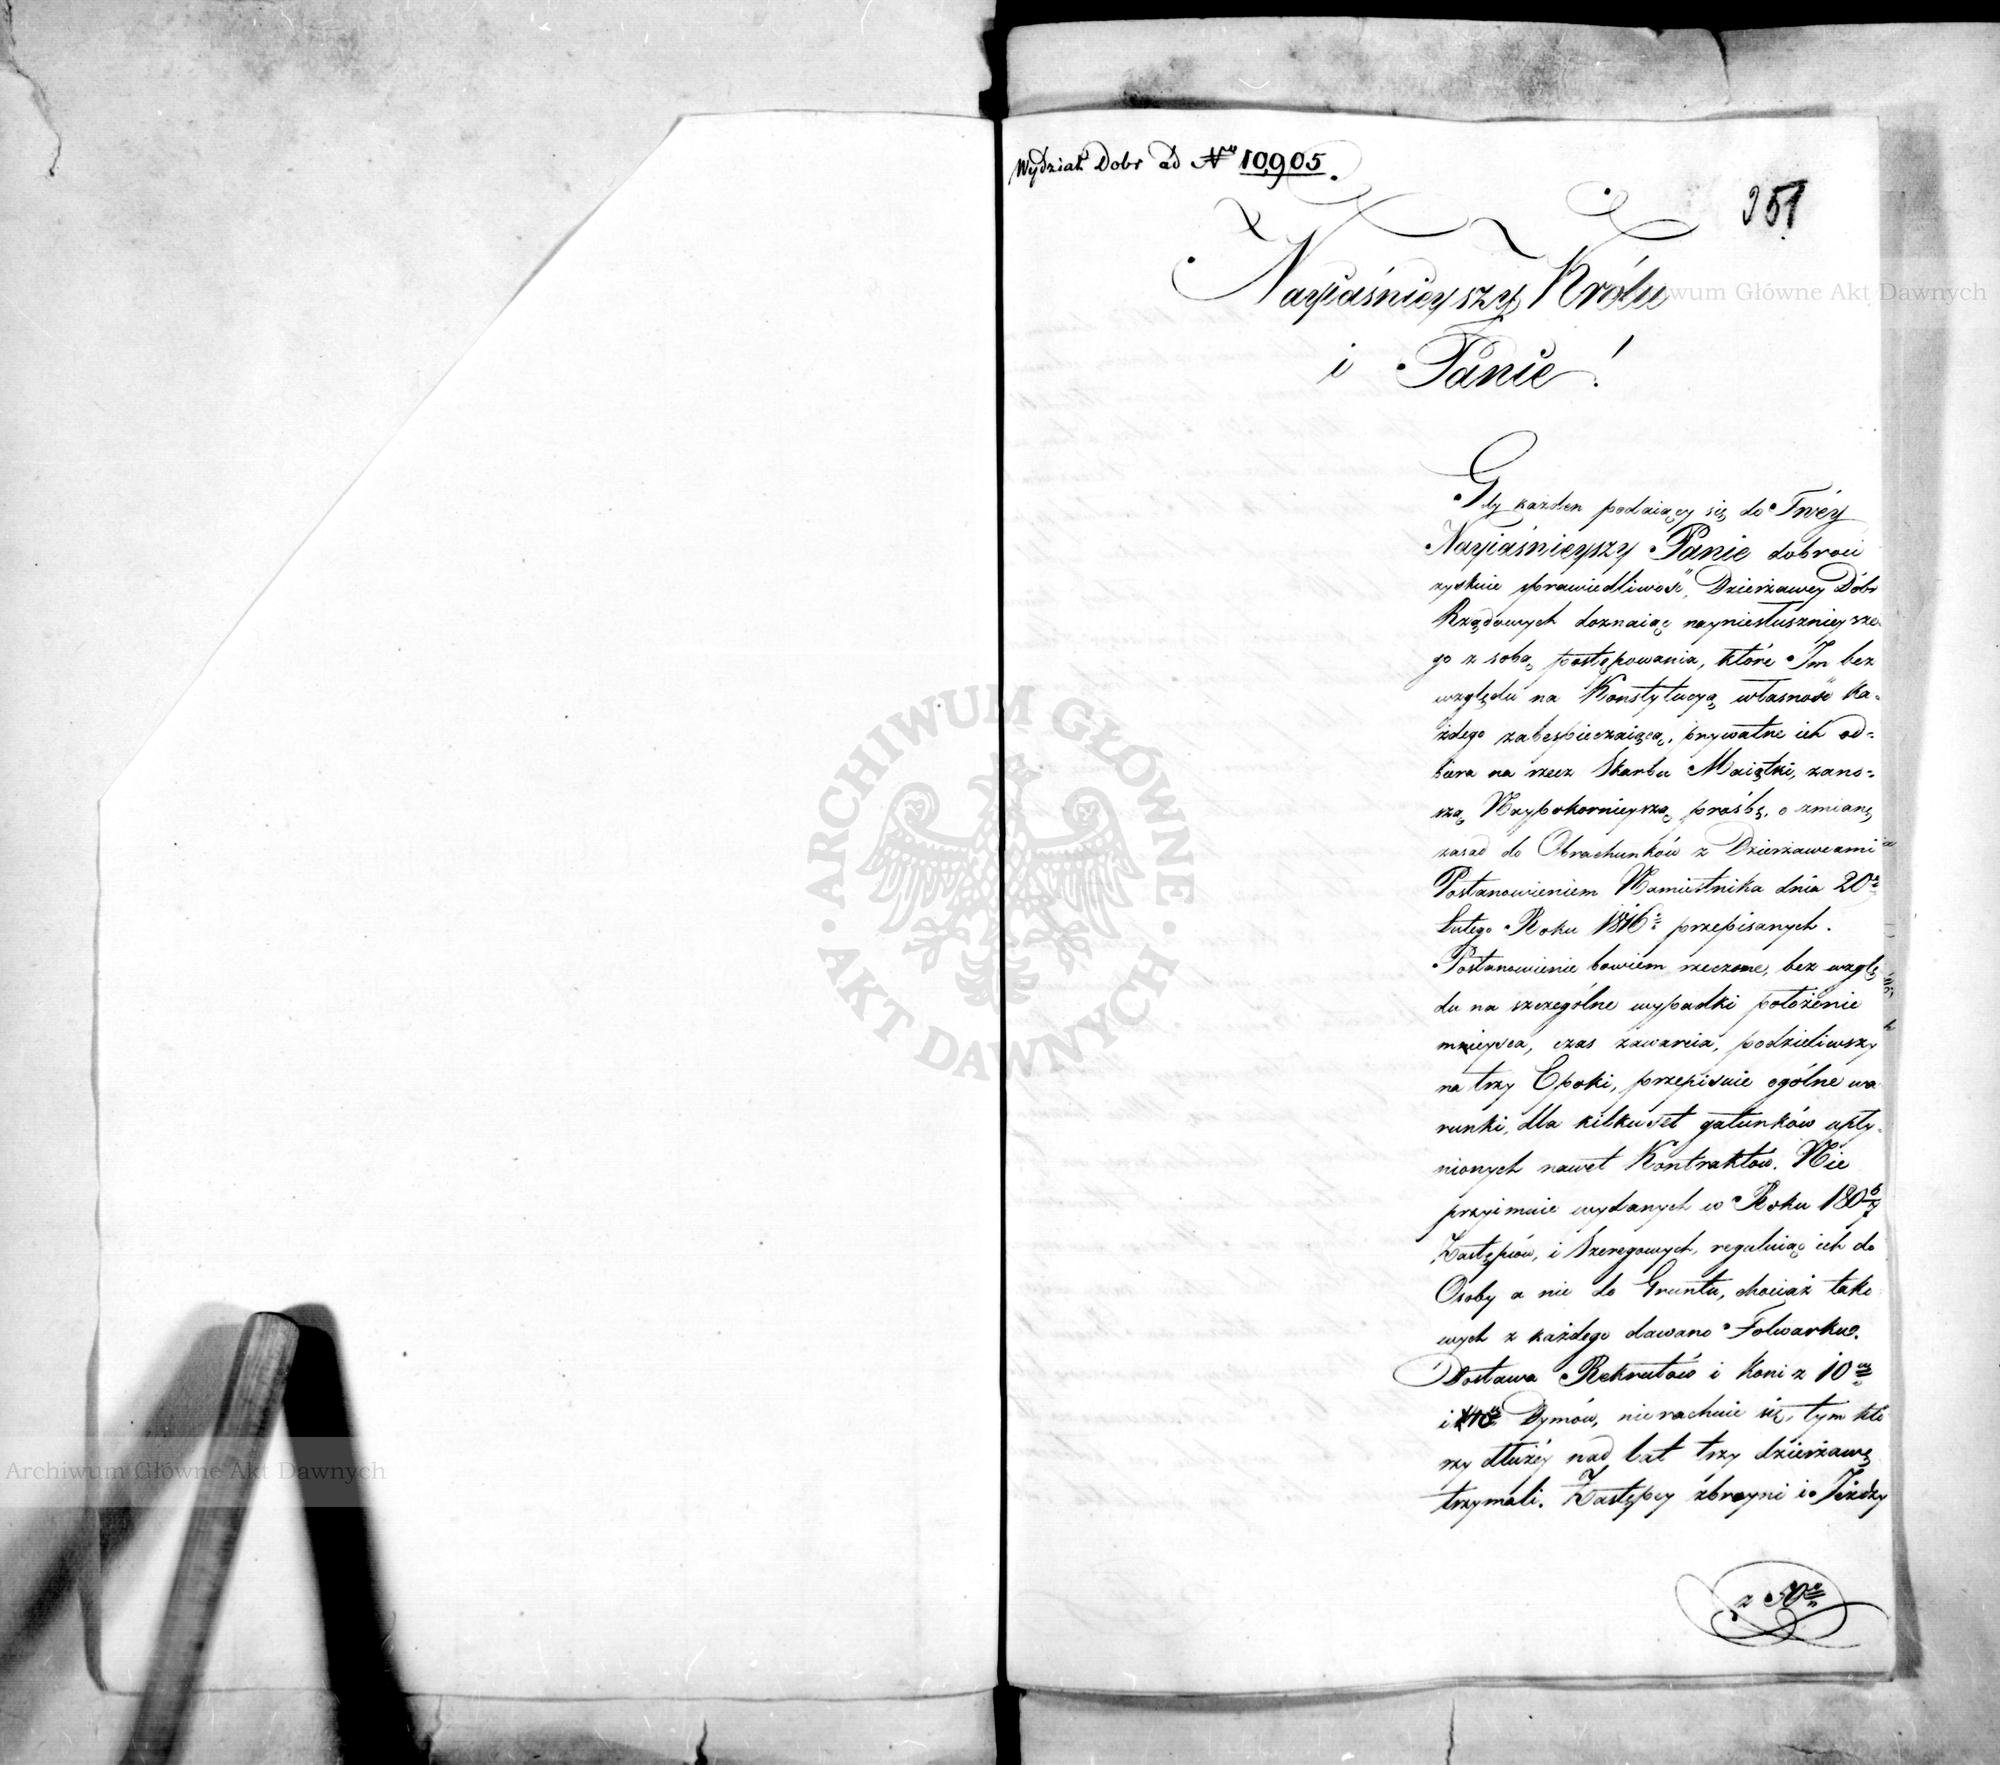 Wydział Dobr ad Nrū 10,905.
351
Nayiaśnieyszy Królu
i Panie!
Gdy każden podaiący się do Twéy
Nayiaśnieyszy Panie dobroci
zyskuie sprawiedliwość, Dzierżawcy Dóbr
Rządowych doznaiąc nayniesłusznieysze-
go z sobą postępowania, które Im bez
względu na Konstytucyą własność Ka-
żdego zabespieczaiącą, prywatne ich od-
biera na rzecz Skarbu Maiątki, zano-
szą Naypokornieyszą prośbę, o zmianę
zasad do Obrachunków z Dzierżawcami
Postanowieniem Namiestnika dnia 20go
Lutego Roku 1816o przepisanych.
Postanowienie bowiem rzeczone, bez wzglę
du na szczególne wypadki położenie
mieysca, czas zawarcia, podzieliwszy
na trzy Epoki, przepisuie ogólne wa
runki, dla kilkuset gatunków upły-
nionych nawet Kontraktów. Nie
przyimuie wydanych w Roku 1806/7
Zastępców, i Szeregowych, reguluiąc ich do
Osoby a nie do Gruntu, chociaż tako
wych z każdego dawano Folwarku.
Dostawa Rekrutów i Koni z 10ciu
i Dymów, nie rachuie się, tym któ
rzy dłużéy nad lat trzy dzierżawę
trzymali. Zastępcy zbroyni i Jeźdzy
z 50ciu
ARCHIWUM GŁÓWNE · AKT DAWNYCH ·
Archiwum Główne Akt Dawnych
Archiwum Główne Akt Dawnych